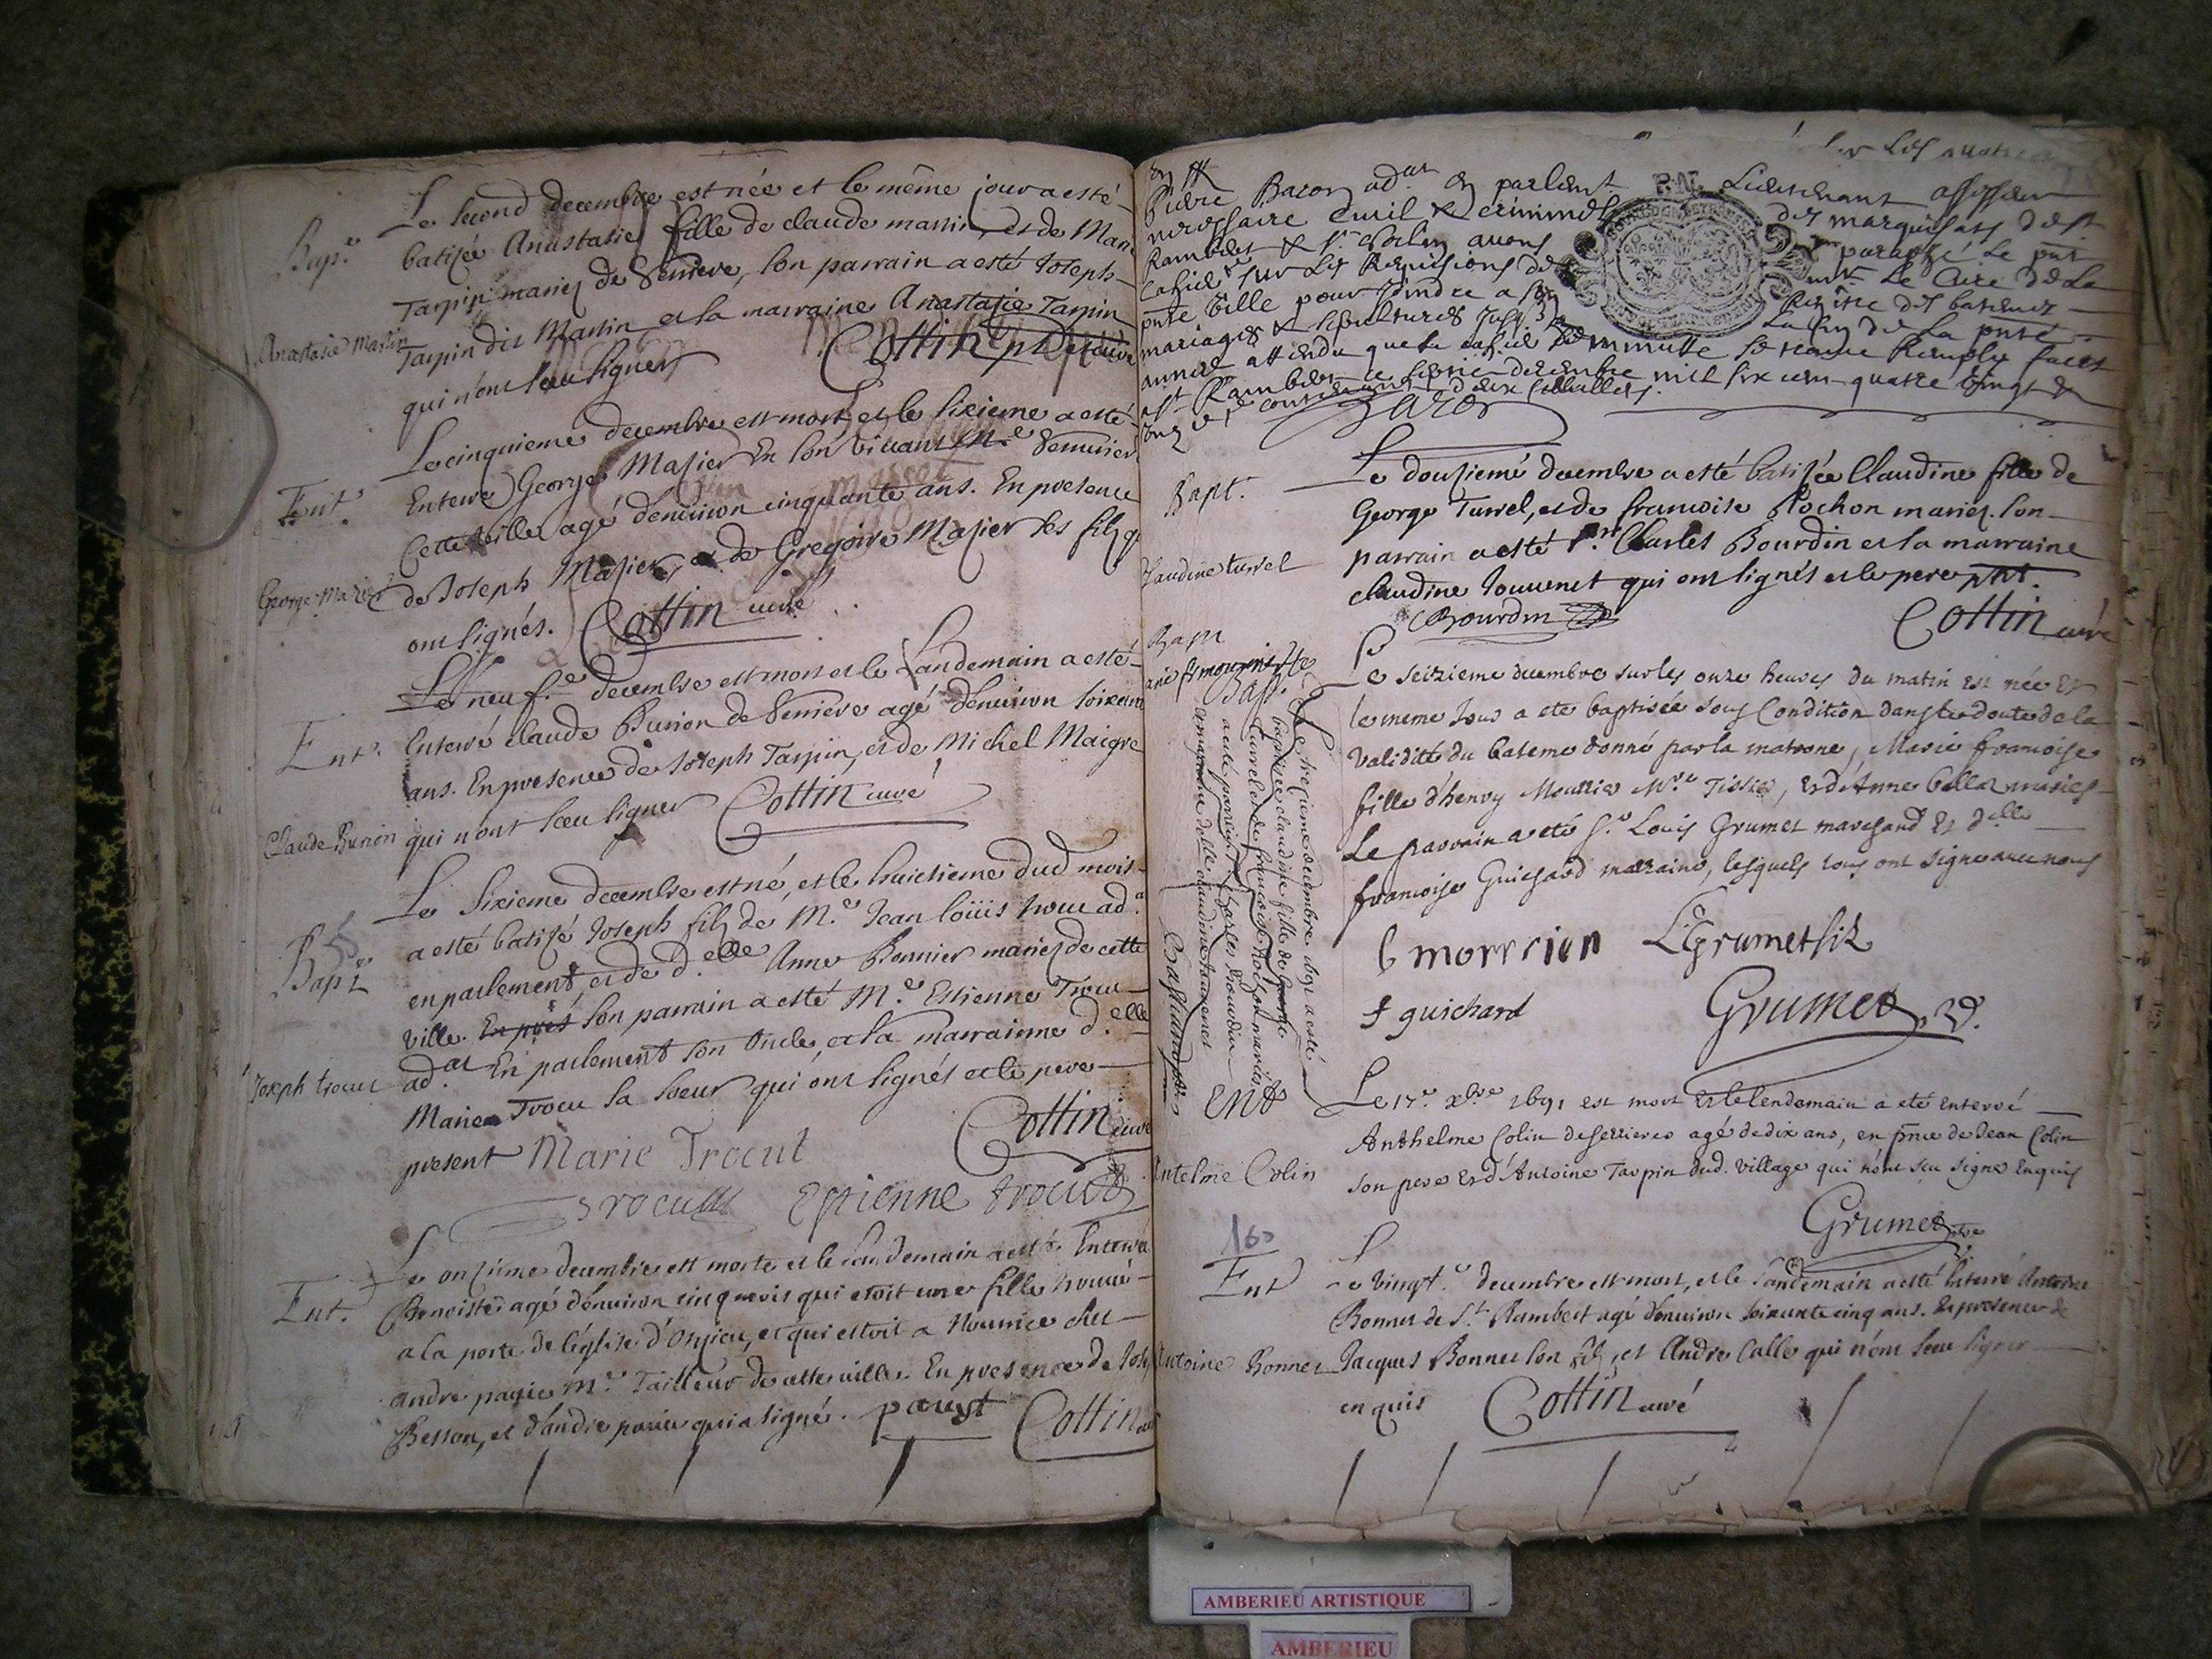 Bap.e
Le second decembre est née et le même jour a esté
batisée Anastasie fille de claude martin et de Marie
Tarpin mariez de Serriere, son parrain a esté Joseph
Anastasie Martin
Tarpin dit Martin et la marraine Anastasie Tarpin
qui n'ont sceu signer Cottin
Le cinquieme decembre est mort et le sixieme a esté
Ent.
Enterré George Masier En son vivant M.e
Cette ville agé d'environ cinquante ans. En presence
George Mazier
de Joseph Masier, et de Gregoire Masier ses filz q
ont signés. Cottin curé
Le neuf.e decembre est mort et le Landemain a esté
Ent.
Enterré claude Burion de Serriere agé d'environ soixante
ans. En presence de Joseph Tarpin, et de Michel Maigre
Claude Burion
qui n'ont sceu signer Cottin curé
Le sixieme decembre est né, et le huictieme dud mois
Bap.e
a esté batisé Joseph filz de M.e Jean loüis trocu ad.
en parlement, et de d.elle Anne Bonnier mariez de cette
ville. En pres son parrain a esté M.e Estienne Trocu
ad.at En parlement son Oncle, et la marrainne d.elle
Joseph trocu
Marie Trocu sa soeur qui ont signés et le pere
present Marie Trocut Cottin curé
Trocut Estienne trocut
Le onzieme decembre est morte et le landemain a esté Enterré
Ent.
Benoiste agé d'environ cinq mois qui etoit une fille trouvé
a la porte de l'église d'Onjieu, et qui estoit a Nourrice chez
andre m.e Tailleur de cette ville. En presence de
Besson, et d'andre qui a signé. Cottin
Pierre Baron ad.at en parlem.t Lieutenant assesseur
necessaire Civil & criminel des marquisats de st
Rambert & s.t avons paraphé le pnt
Cahier sur les Requisions de m.e Le Cure de La
pnte ville pour Joindre a son Registre des batemes
mariages & sepultures jusq. a La fin de La pnte
annee attendu que le cahier de minutte se treuve Remply faict
a st Rambert ce decembre mil six cens quatre vingt &
onze contenant deux feuillets.
Bapt.
Le douzieme decembre a esté batisée Claudine fille de
George Turrel, et de francoise Rochon mariez. son
parrain a esté Charles Bourdin et la marraine
Claudine turrel
claudine Jouvenet qui ont signés et le pere pnt.
CBourdin Cottin curé
Bapt
Le seizieme decembre sur les onze heures du matin est née et
le meme Jour a eté baptisée sous Condition dans le doute de la
validité du bateme donné par la matrone, Marie francoise
fille d'henry M.e Tissier, et d'Anne mariés
Le parrain a eté s.r Louis Grumet marchand et d.elle
francoise Guichard marraine, lesquels tous ont signe avec nous
LGrumet filz
f guichard Grumet
Le treizieme decembre 1691 a esté
baptisée claudine fille de George
turrel et de francoise Rochon mariés
a esté parrain Charles Bourdin
et marraine d.elle claudine Jouvenet
Ent
Le 17.e xbre 1691 est mort et le lendemain a eté enterré
Anthelme Colin de serrieres agé de dix ans, en pnce de Jean Colin
Antelme Colin
son pere et d'Antoine Tarpin dud. village qui n'ont sceu signe Enquis
Grumet
160
Ent
Le vingt.e decembre est mort, et le landemain a esté Enterré Antoine
Bonnet de S.t Rambert agé d'environ soixante cinq ans. En presence de
Antoine Bonnet
Jacques Bonnet son filz, et Andre Calle qui n'ont sceu signer
enquis Cottin curé
AMBERIEU ARTISTIQUE
AMBERIEU